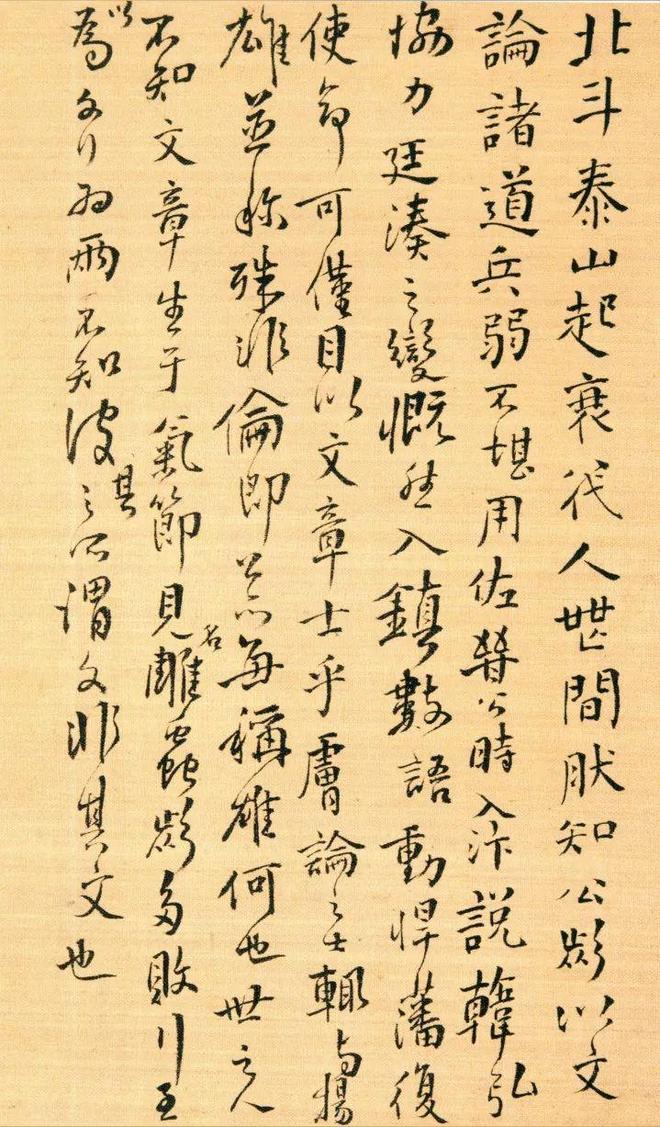 北斗泰山起衰代人世間知公類以文
論諸道兵弱不堪用佐晉公時入汴說韓弘
協力廷湊之變慨然入鎮數語動悍藩復
使命可僅目以文章士乎膚論之士輒與揚
雄並稱殊非倫即公亦每稱雄何也世之人
不知文章生于氣節見名雕蟲類多敗行至
以為文行為兩不知彼其之所謂文非其文也